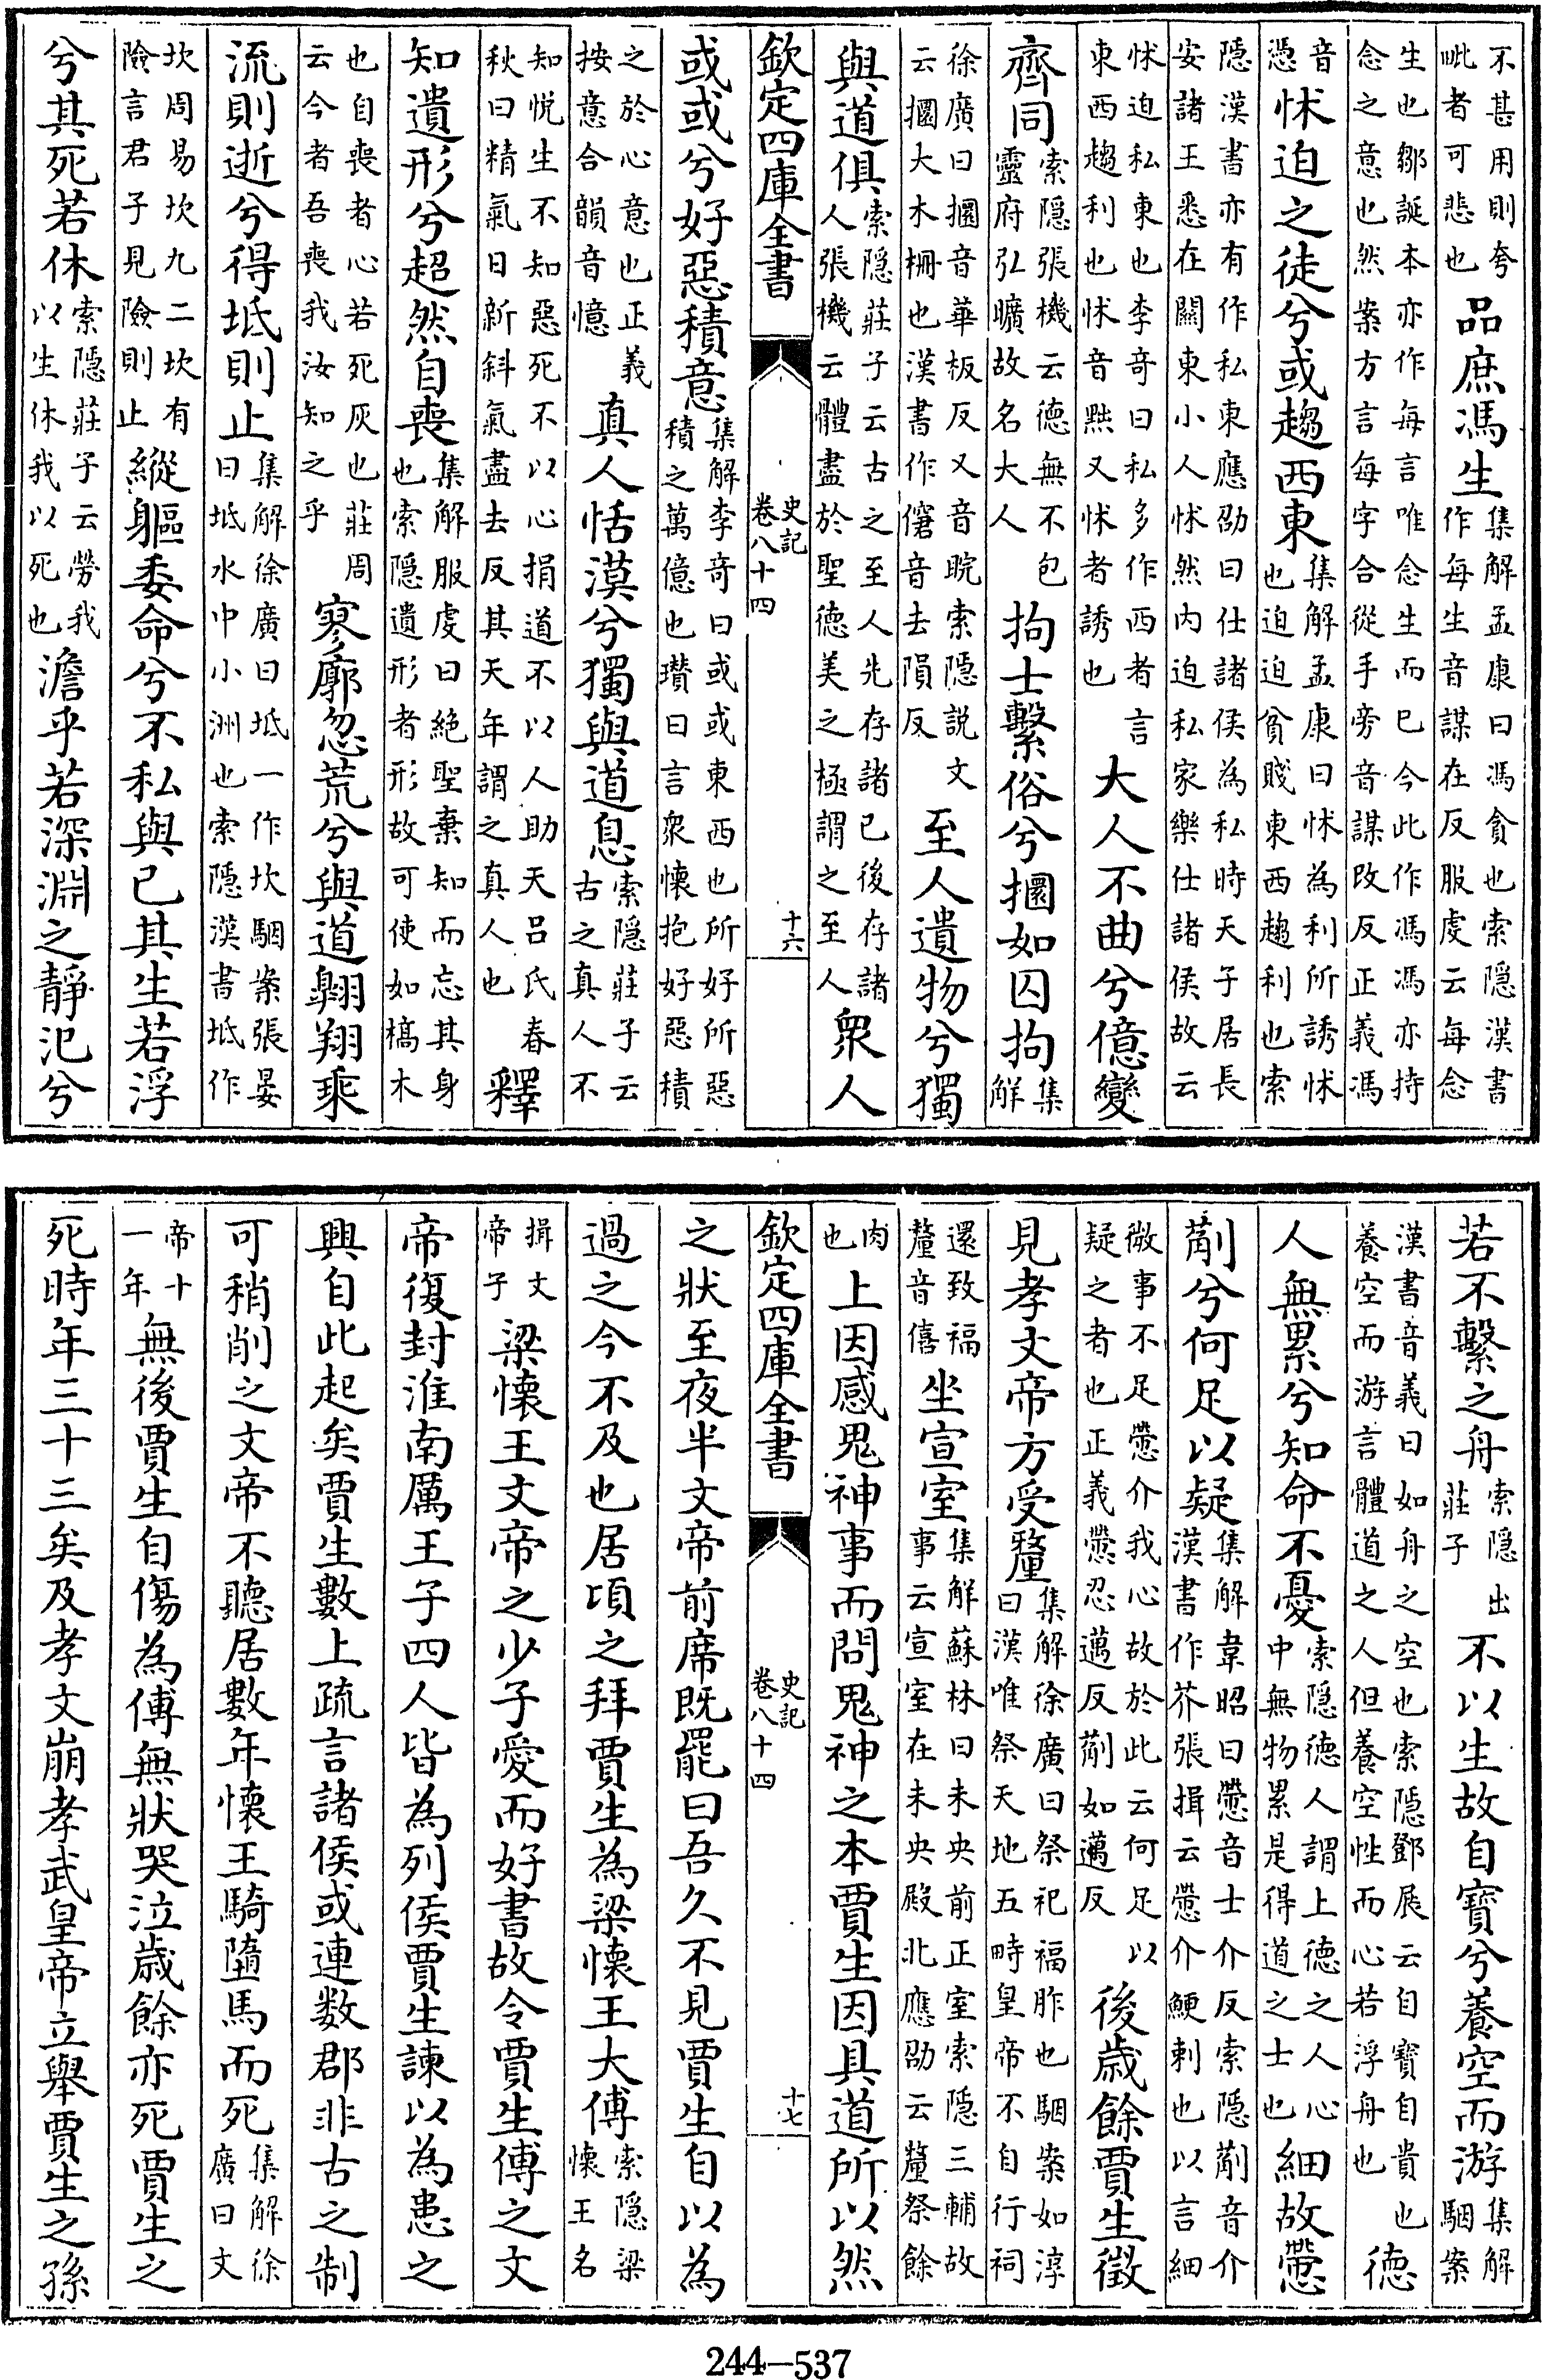 不甚用則夸毗者可悲也品庶馮生集解孟康曰馮貪也索隱漢書作每生音謀在反服虔云每念
生也鄒誕本亦作每言唯念生而已今此作馮馮亦持念之意也然案方言每字合從手旁音謀改反正義馮
音憑怵迫之徒兮或趨西東集解孟康曰怵為利所誘怵也迫迫貧賤東西趨利也索
隱漢書亦有作私東應劭曰仕諸侯為私時天子居長安諸王悉在關東小人怵然内迫私家樂仕諸侯故云
怵迫私東也李奇曰私多作西者言東西趨利也怵音黜又怵者誘也大人不曲兮億變
齊同索隱張機云德無不包靈府弘曠故名大人拘士繫俗兮攌如囚拘集解
徐廣曰攌音華板反又音睆索隱說文云攌大木柵也漢書作僒音去隕反至人遺物兮獨
與道俱索隱莊子云古之至人先存諸已後存諸人張機云體盡於聖德美之極謂之至人衆人
欽定四庫全書 史記卷八十四 十六
或或兮好惡積意集解李奇曰或或東西也所好所惡積之萬億也瓚曰言衆懷抱好惡積
之於心意也正義按意合韻音憶真人恬漠兮獨與道息索隱莊子云古之真人不
知悦生不知惡死不以心捐道不以人助天吕氏春秋曰精氣日新斜氣盡去反其天年謂之真人也釋
知遺形兮超然自喪集解服虔曰絶聖棄知而忘其身也索隱遺形者形故可使如槁木
也自喪者心若死灰也莊周云今者吾喪我汝知之乎寥廓忽荒兮與道翺翔乘
流則逝兮得坻則止集解徐廣曰坻一作坎駰案張晏曰坻水中小洲也索隱漢書坻作
坎周易坎九二坎有險言君子見險則止縱軀委命兮不私與已其生若浮
兮其死若休索隱莊子云勞我以生休我以死也澹乎若深淵之靜氾兮
若不繫之舟索隱出莊子不以生故自寶兮養空而游集解駰案
漢書音義曰如舟之空也索隱鄧展云自寶自貴也養空而游言體道之人但養空性而心若浮舟也德
人無累兮知命不憂索隱德人謂上德之人心中無物累是得道之士也細故慸
葪兮何足以疑集解韋昭曰慸音士介反索隱葪音介漢書作芥張揖云慸介鯁刺也以言細
微事不足慸介我心故於此云何足以疑之者也正義慸忍邁反葪如邁反後歳餘賈生徵
見孝文帝方受釐集解徐廣曰祭祀福胙也駰案如淳曰漢唯祭天地五畤皇帝不自行祠
還致福釐音僖坐宣室集解蘇林曰未央前正室索隱三輔故事云宣室在未央殿北應劭云釐祭餘
肉也上因感鬼神事而問鬼神之本賈生因具道所以然
欽定四庫全書 史記卷八十四 十七
之狀至夜半文帝前席既罷曰吾久不見賈生自以為
過之今不及也居頃之拜賈生為梁懷王大傅索隱梁懷王名
揖文帝子梁懷王文帝之少子愛而好書故令賈生傅之文
帝復封淮南厲王子四人皆為列侯賈生諫以為患之
興自此起矣賈生數上疏言諸侯或連數郡非古之制
可稍削之文帝不聽居數年懷王騎墮馬而死集解徐廣曰文
帝十一年無後賈生自傷為傅無狀哭泣歳餘亦死賈生之
死時年三十三矣及孝文崩孝武皇帝立舉賈生之孫
244—537